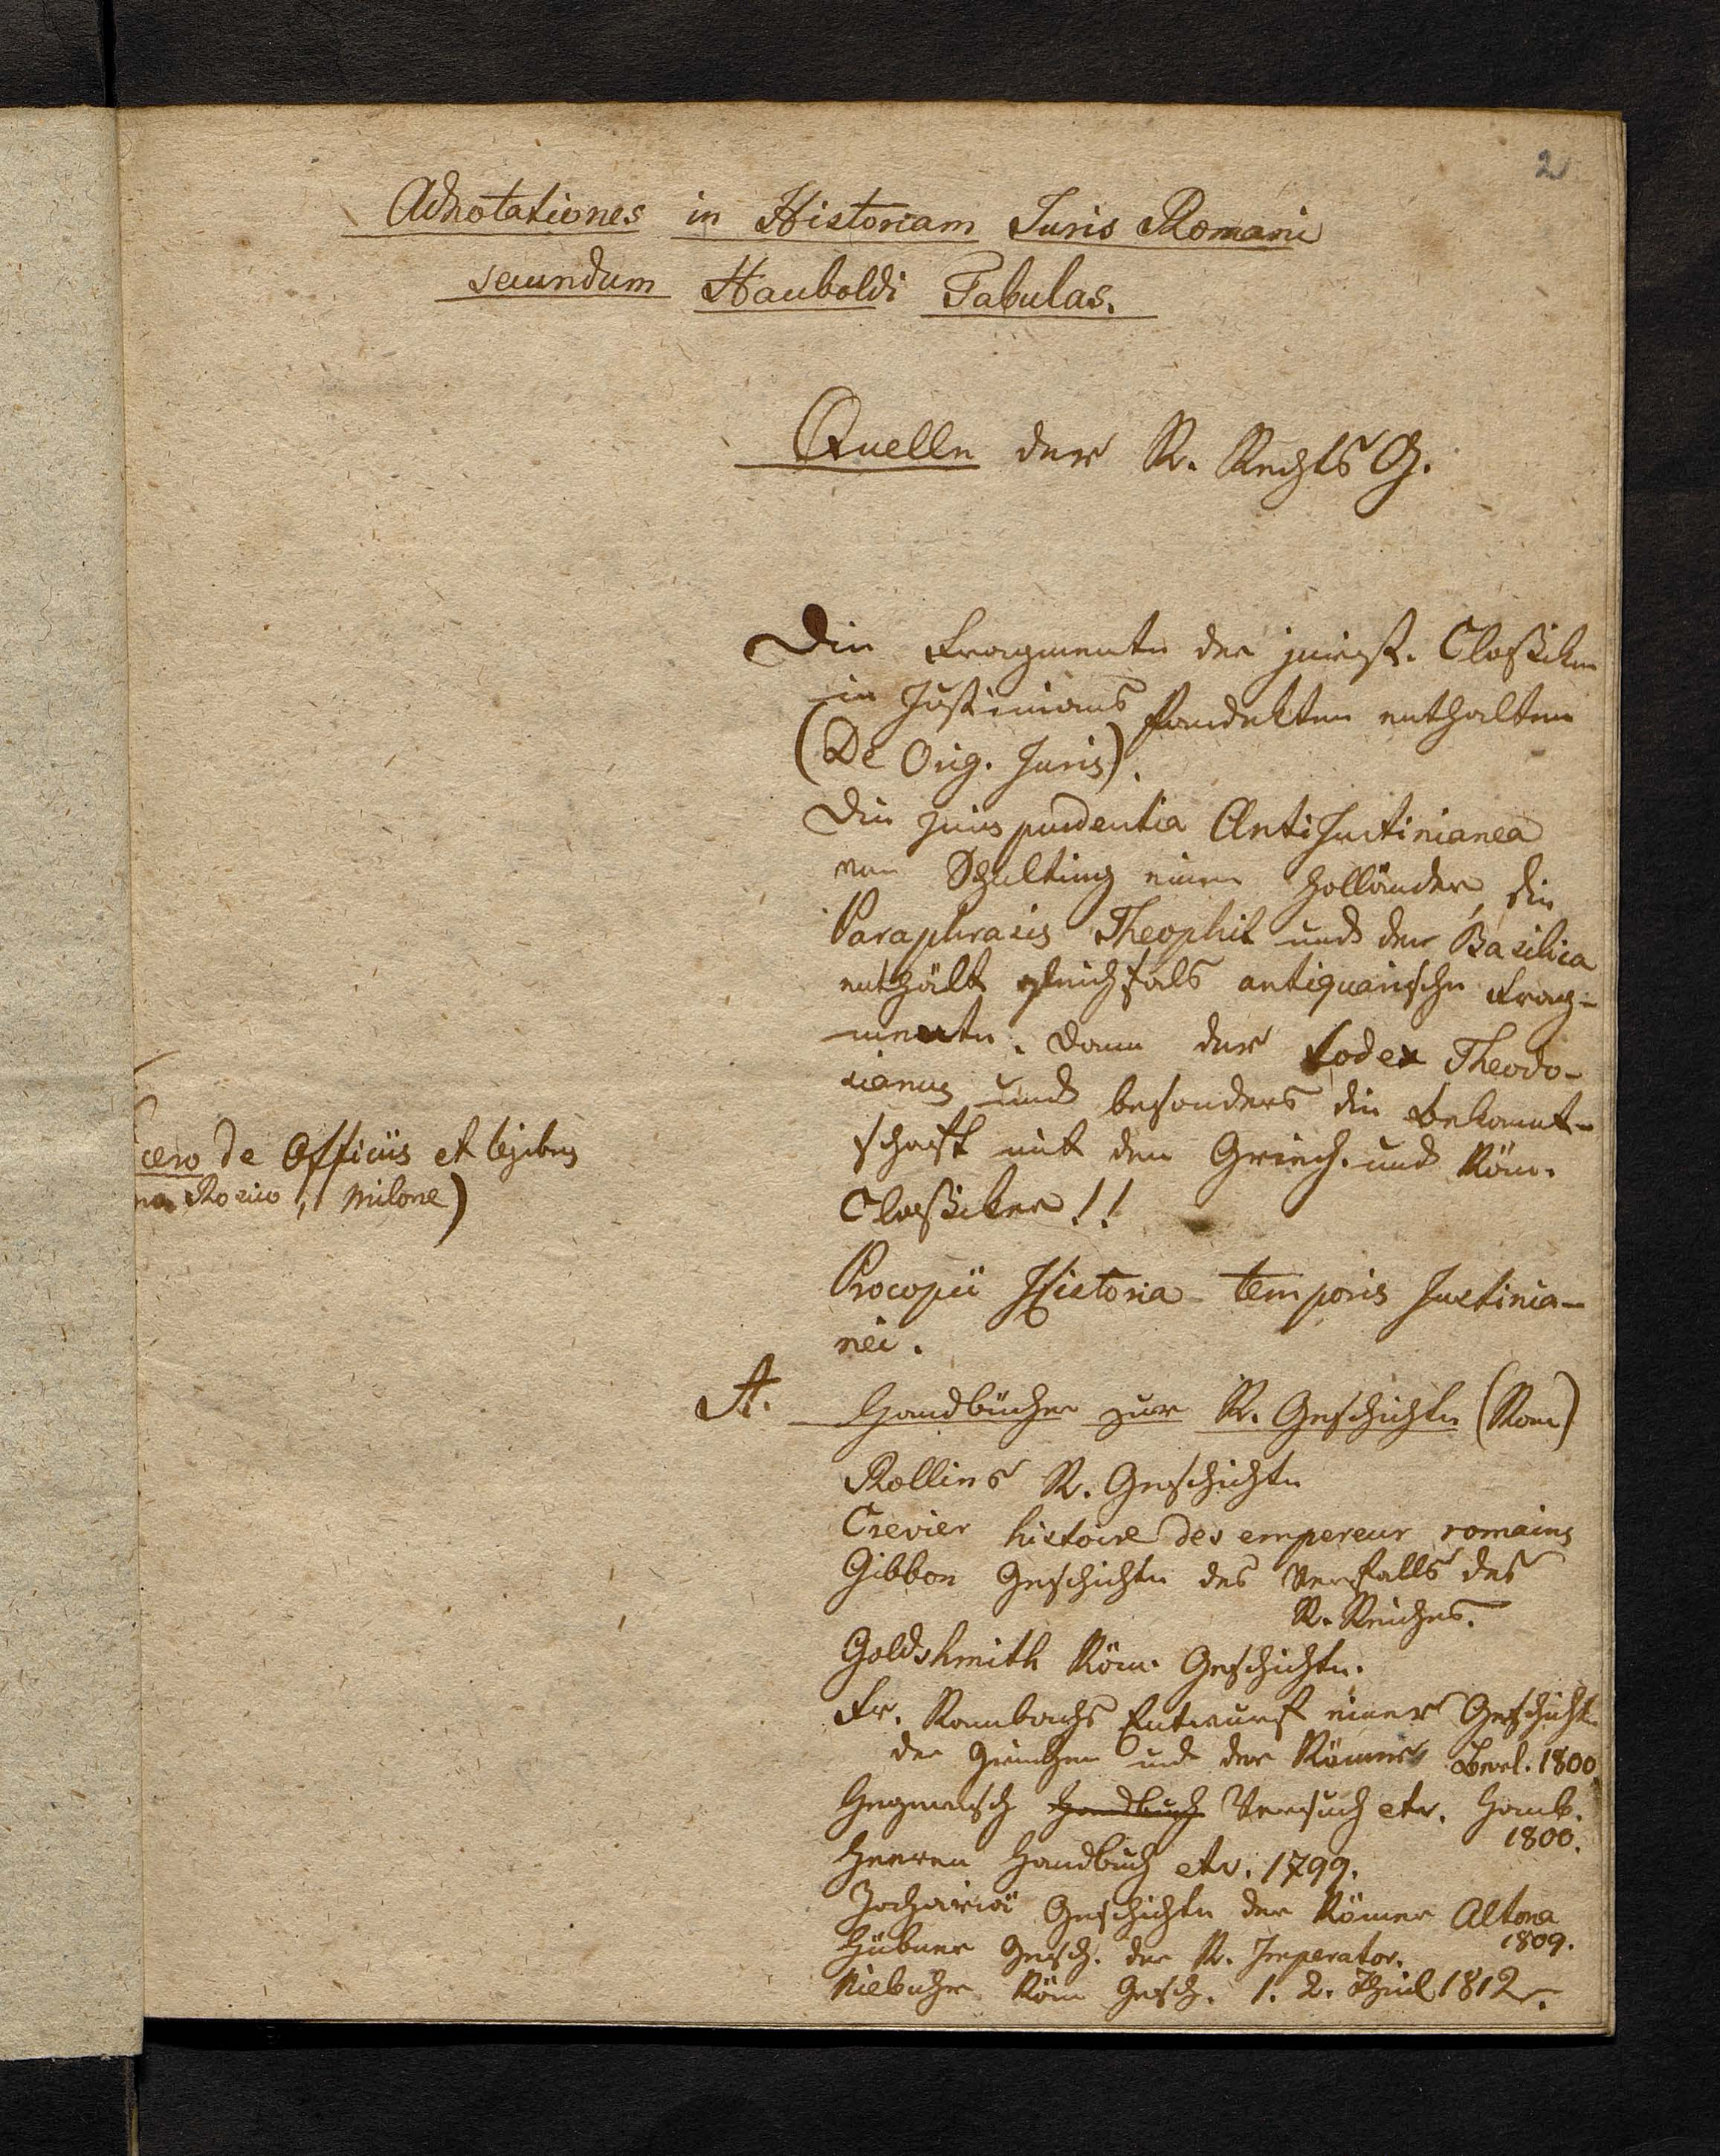 2
Adnotationes in Historiam Iuris Romani
secundum Hauboldi Tabulas.
Quelle der R. Rechts G.
Die Fragmente der jurist. Classiker
in Justinians Pandekten enthalten
(De Orig. Juris).
Die Jurisprudentia AntiJustinianea
von Schulting einem Holländer, die
Paraphrasis Theophil und der Basilica
enthält gleichfals antiquarische Frag-
mente. Dann der Codex Theodo-
sianus und besonders die Bekannt-
schaft mit den Griech. und Röm.
Classiker!!
cero de Officiis et legibus
Roscio, Milone)
Procopii Historia temporis Justinia-
nei.
A. Handbücher zur R. Geschichte (Rom)
Rollins R. Geschichte
Crevier histoire des empereur romains
Gibbon Geschichte des Verfalls des
R. Reiches.
Goldshmith Röm. Geschichte.
Fr. Rambachs Entwurf einer Geschichte
der Griechen und der Römer Berl. 1800
Hegewisch Handbuch Versuch etc. Hamb.
1800.
Heeren Handbuch etc. 1799.
Zachariä Geschichte der Römer Altona
1809.
Hübner Gesch. der R. Imperator.
Niebuhr Röm Gesch. 1. 2. Theil 1812.